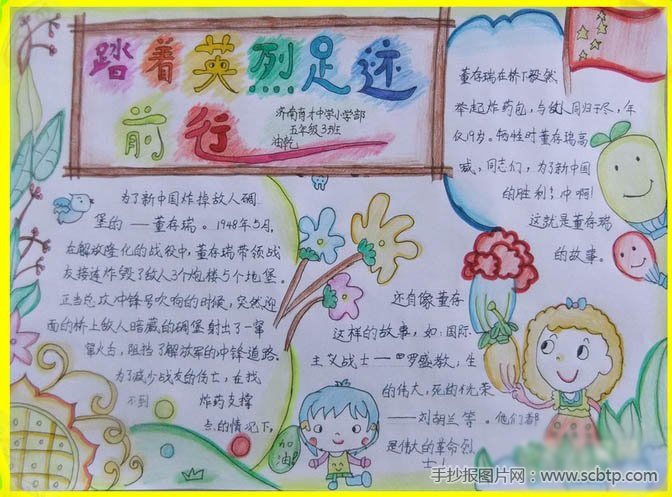 踏着英烈足迹
前行
济南育才中学小学部
五年级3班
油乾
为了新中国炸掉敌人碉
堡的——董存瑞。1948年5月,
在解放隆化的战役中,董存瑞带领战
友接连炸毁了敌人3个炮楼5个地堡。
正当总攻冲锋号吹响的时候,突然迎
面的桥上敌人暗藏的碉堡射出了一军
窜火台,阻挡了解放军的冲锋道路.
为了减少战友的伤亡,在找
不到 炸药支撑
点的情况下,
董存瑞在桥下毅然
举起炸药包,与敌人同归于尽,年
仅19岁。牺牲时董存瑞高
喊,同志们,为了新中国
的胜利!冲啊!
这就是董存瑞
的故事。
还有像董存
这样的故事,如:国际.
主义战士——罗盛教,生
的伟大,死的优荣
——刘胡兰等。他们都
是伟大的革命烈
士!
加
油!
手抄报图片网:www.scbtp.com